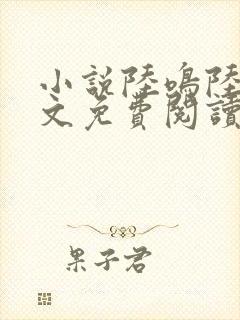 小說陸鳴陸
文免費閱讀
果子君